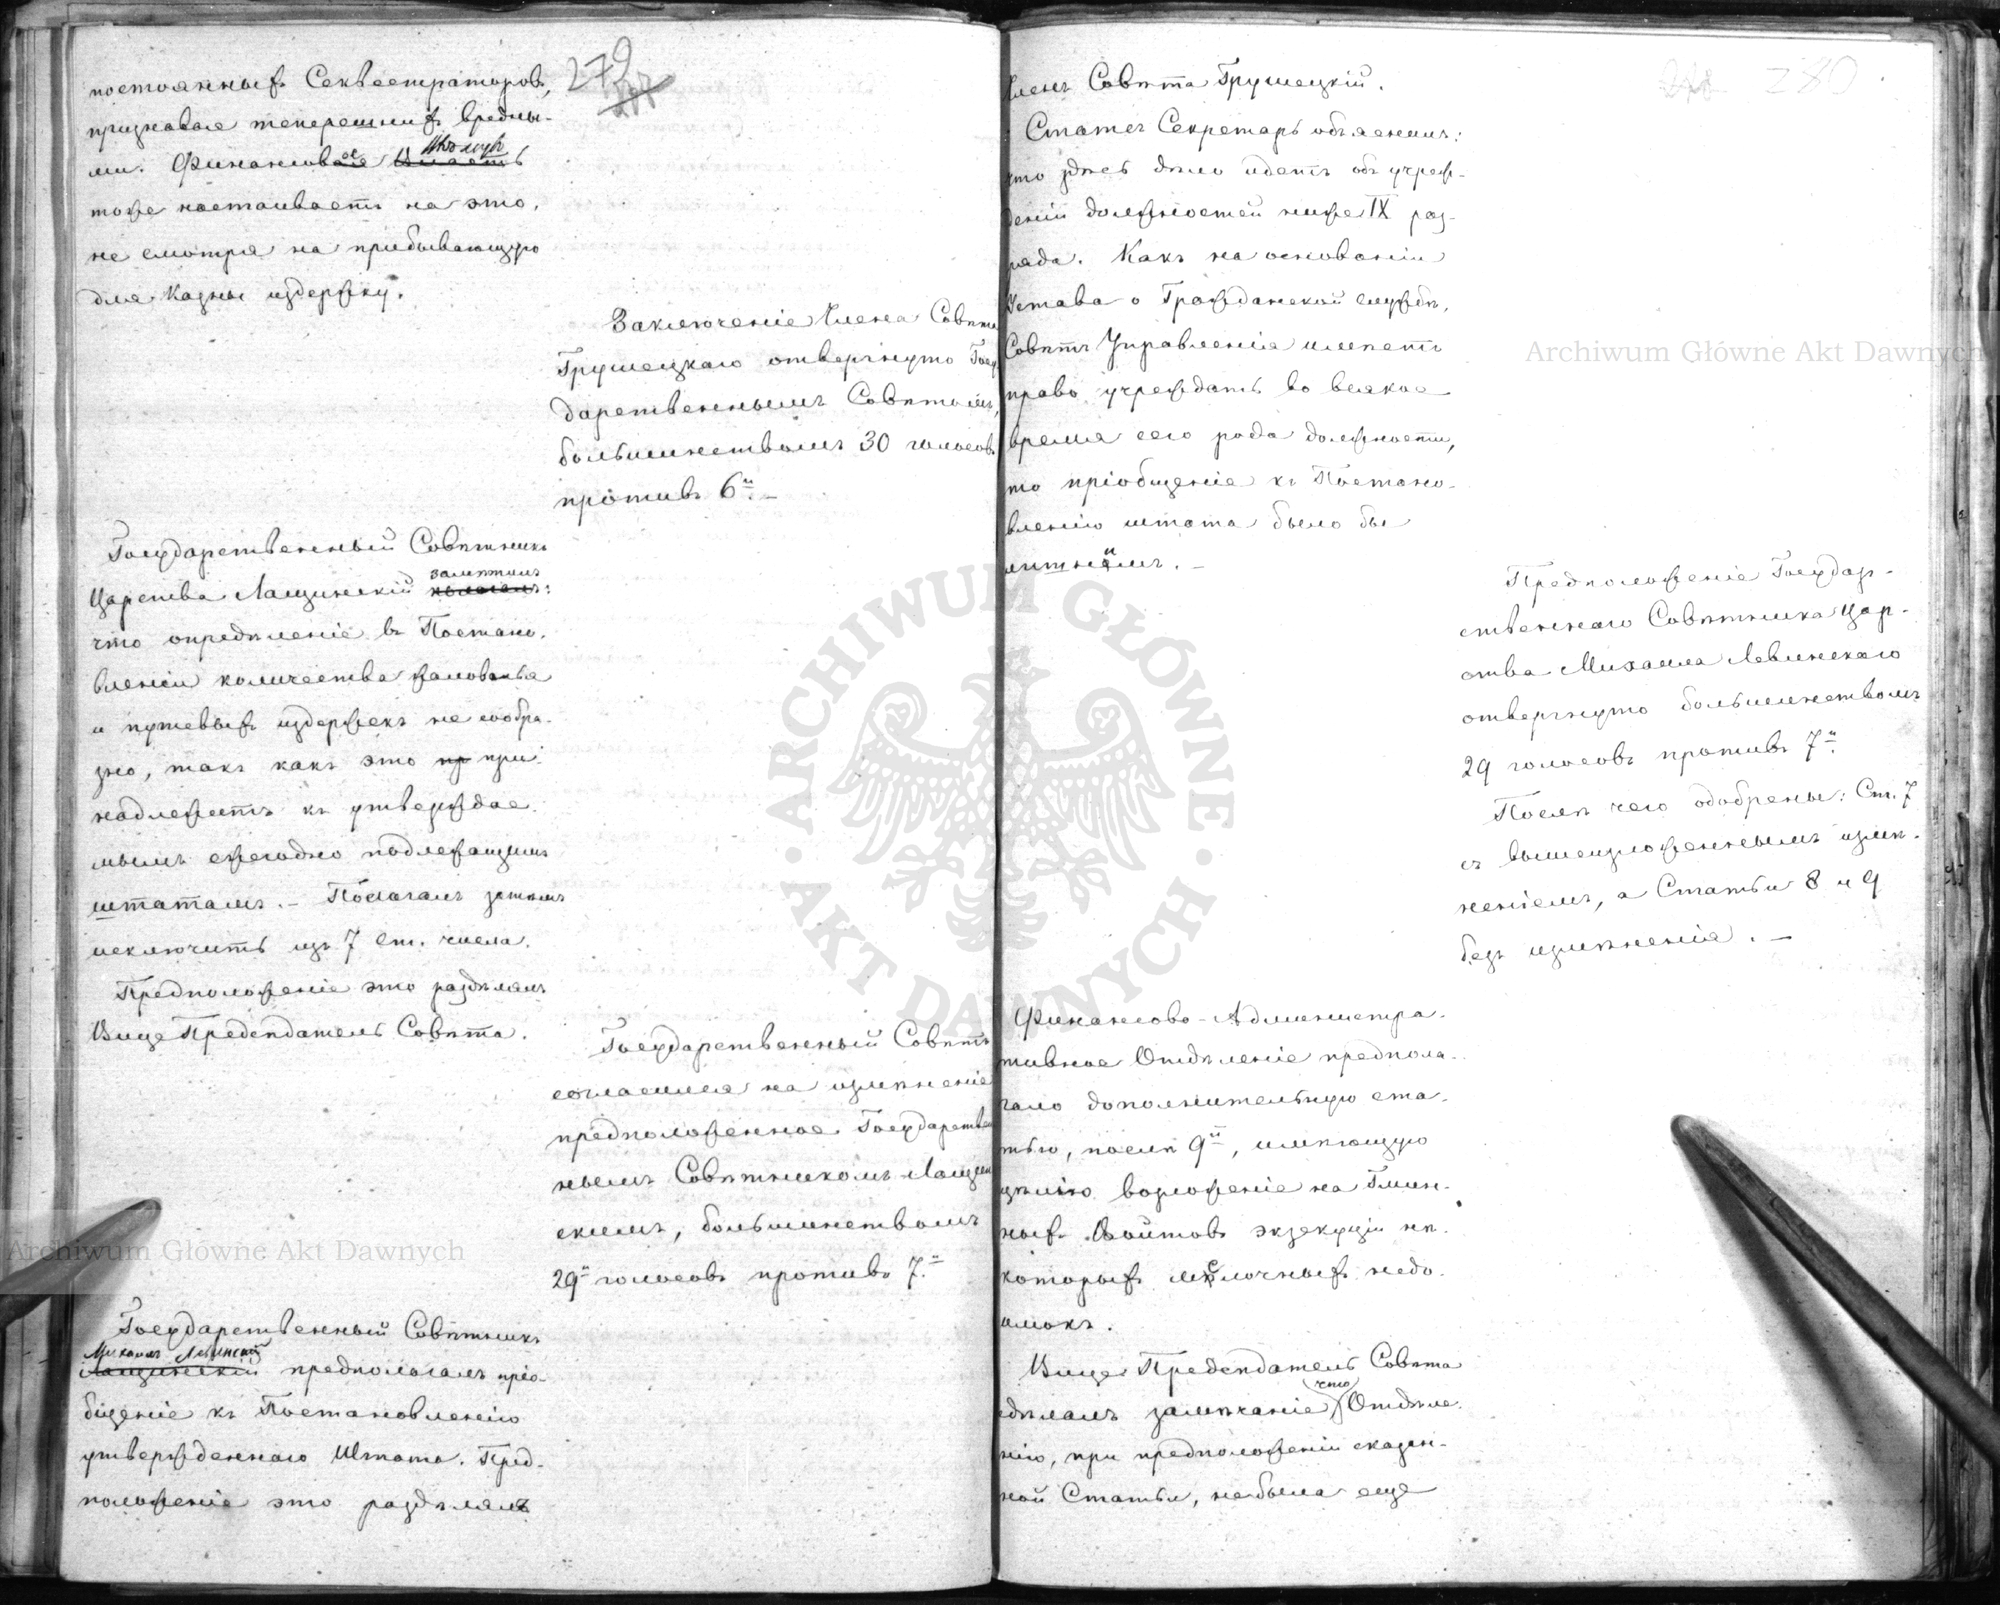 279
постоянныхъ Секвестраторовъ,
признавая теперешнихъ вредны-
ми. Финансовое
тоже настаиваетъ на это,
не смотря на прибывающую
для Казны издержку.
Заключеніе Члена Совѣта
Грушецкаго отвергнуто Госу
дарственнымъ Совѣтомъ,
большинствомъ 30 голосовъ
противъ 6и. —
Государственный Совѣтникъ
Царства Лащинскій замѣтилъ полагалъ:
что опредѣленіе въ Постано-
вленіи количества жалованья
и путевыхъ издержекъ не сообра-
зно, такъ какъ это пр при-
надлежитъ къ утверждае
мымъ ежегодно подлежащимъ
штатамъ. — Полагалъ затѣмъ
исключить изъ 7 ст. числа.
Предположеніе это раздѣлялъ
Вице Предсѣдатель Совѣта.
Государственный Совѣтъ
согласился на измѣненіе
предположенное Государствен
нымъ Совѣтникомъ Лащин
скимъ, большинствомъ
29и голосовъ противъ 7и.
Государственный Совѣтникъ
Михаилъ Левинскій
Лащинскій предполагалъ пріо-
бщеніе къ Постановленію
утвержденнаго Штата. Пред-
положеніе это раздѣлялъ
280
Членъ Совѣта Грушецкій.
Статсъ Секретарь объяснилъ:
что здѣсь дѣло идетъ объ учреж-
деніи должностей ниже IX раз-
ряда. Какъ на основаніи
Устава о Гражданской службѣ,
Совѣтъ Управленія имѣетъ
право учреждать во всякое
время сего рода должности,
то пріобщеніе къ Постано-
вленію штата было бы
лишнимъ. —
Предположеніе Государ-
ственнаго Совѣтника Цар-
ства Михаила Левинскаго
отвергнуто большинствомъ
29 голосовъ противъ 7и.
Послѣ чего одобрены: Ст. 7
съ вышеизложеннымъ измѣ-
неніемъ, а Статьи 8 и 9
безъ измѣненія. —
Финансово-Администра-
тивное Отдѣленіе предпола-
гало дополнительную ста-
тью, послѣ 9й, имѣющую
цѣлію возложеніе на Гмин-
ныхъ Войтовъ экзекуціи нѣ-
которыхъ мелочныхъ недо-
имокъ.
Вице Предсѣдатель Совѣта
сдѣлалъ замѣчаніе что Отдѣле-
нію, при предположеніи сказан-
ной Статьи, не была еще
Archiwum Główne Akt Dawnych
Archiwum Główne Akt Dawnych
ARCHIWUM GŁÓWNE · AKT DAWNYCH ·